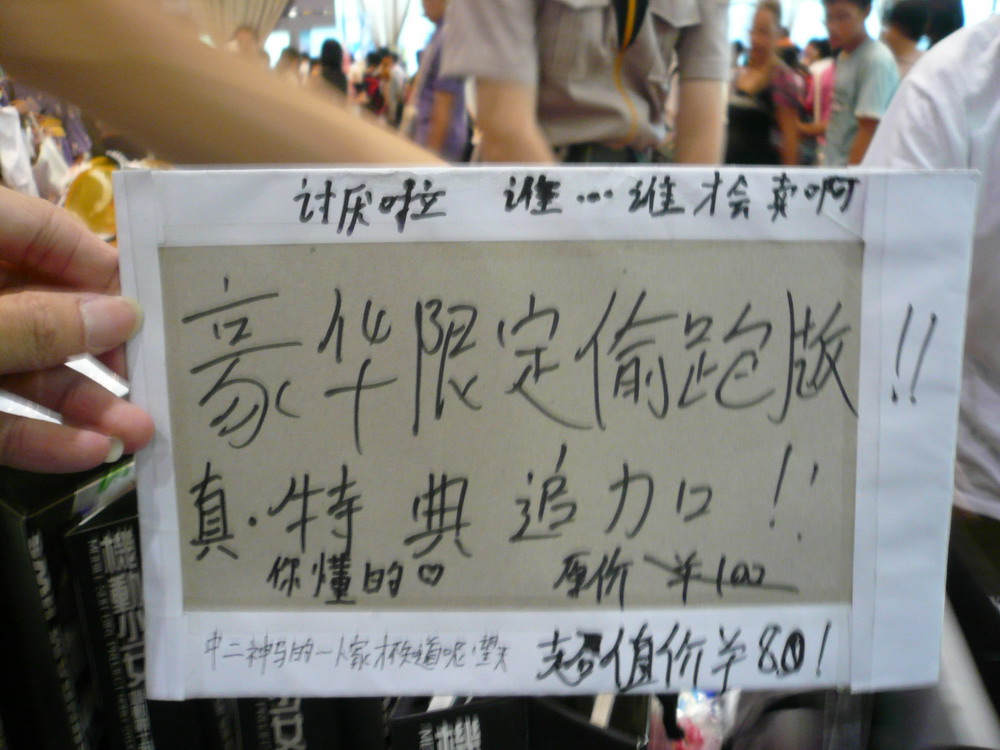 讨厌啦 谁…谁才会卖啊
豪华限定偷跑版!!
真·特典追加!!
你懂的♡ 原价 ¥100
中二神马的人家才不知道呢·望天
超值价¥80!
機